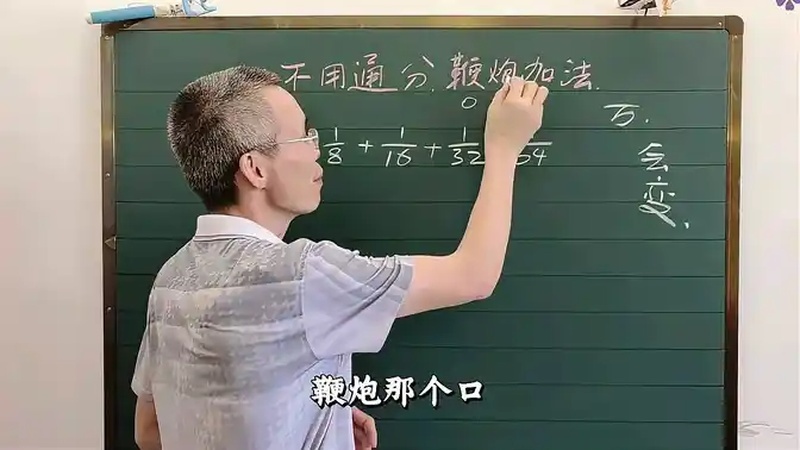 不用通分.鞭炮加法.
1/8 + 1/16 + 1/32
64
万.
会
变.
鞭炮那个口